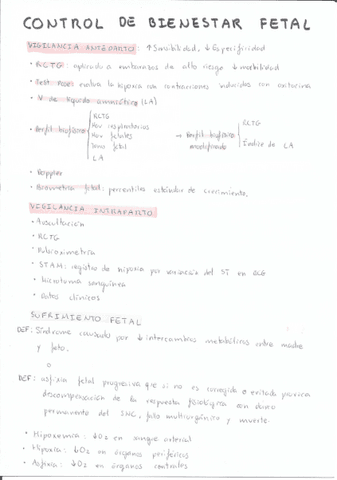 CONTROL DE BIENESTAR FETAL
VIGILANCIA ANTEPARTO: ↑ Sensibilidad, ↓ Especificidad
• RCTG: aplicado a embarazos de alto riesgo ↓ morbilidad
• Test Pose: evalua la hipoxia con contracciones inducidas con oxitocina
• V. de líquido amniótico (LA)
• Perfil biofísico { RCTG
Mov respiratorios
Mov fetales
Tono fetal
LA
→ Perfil biofísico modificado { RCTG
Índice de LA
• Doppler
• Biometría fetal: percentiles estándar de crecimiento.
VIGILANCIA INTRAPARTO
• Auscultación
• RCTG
• Pulsioximetría
• STAM: registro de hipoxia por variación del ST en ECG
• Microtoma sanguínea
• Datos clínicos
SUFRIMIENTO FETAL
DEF: Síndrome causado por ↓ intercambios metabólicos entre madre
y feto.
o
DEF: asfixia fetal progresiva que si no es corregida o evitada provoca
descompensación de la respuesta fisiológica con daño
permanente del SNC, fallo multiorgánico y muerte.
• Hipoxemia: ↓O2 en sangre arterial
• Hipoxia: ↓O2 en órganos periféricos
• Asfixia: ↓O2 en órganos centrales